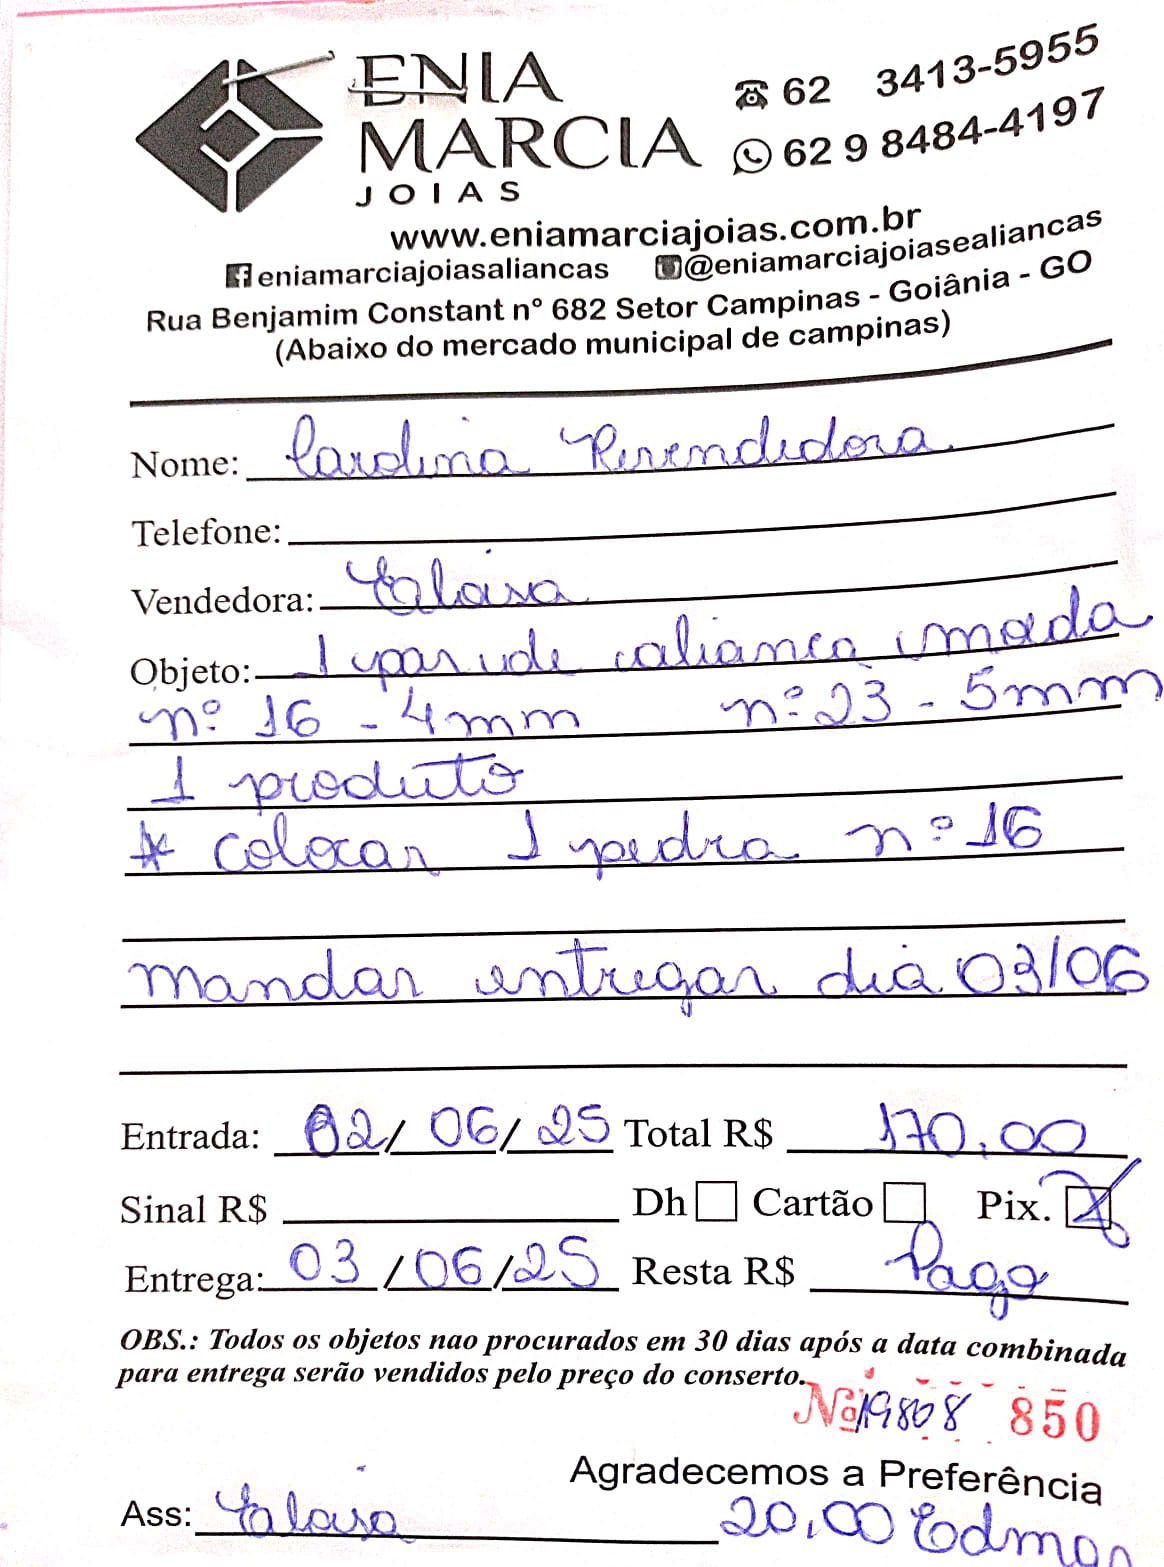 ENIA
MARCIA
JOIAS
62 3413-5955
62 9 8484-4197
www.eniamarciajoias.com.br
eniamarciajoiasaliancas @eniamarciajoiasealiancas
Rua Benjamim Constant n° 682 Setor Campinas - Goiânia - GO
(Abaixo do mercado municipal de campinas)
Nome: Carolina Revendedora
Telefone:
Vendedora: Eloisa
Objeto: 1 par de aliança moeda
nº 16 - 4mm nº 23 - 5mm
1 produto
* colocar 1 pedra nº 16
mandar entregar dia 03/06
Entrada: 02/06/25 Total R$ 170,00
Sinal R$ Dh Cartão Pix.
Entrega: 03/06/25 Resta R$ Pago
OBS.: Todos os objetos nao procurados em 30 dias após a data combinada
para entrega serão vendidos pelo preço do conserto.
Nº 19868 850
Agradecemos a Preferência
Ass: Eloisa 20,00 Edmar